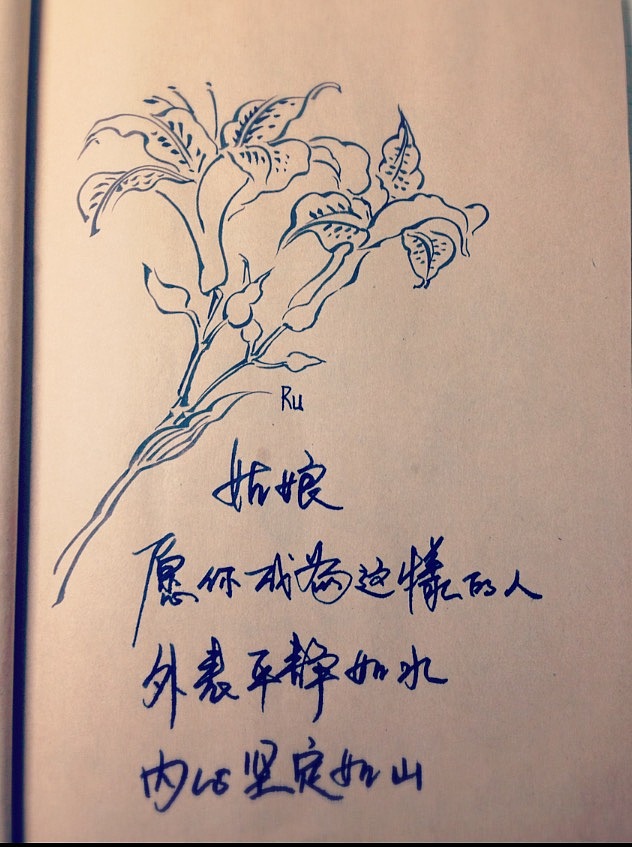 Ru
姑娘
愿你成为这樣的人
外表平静如水
内心坚定如山